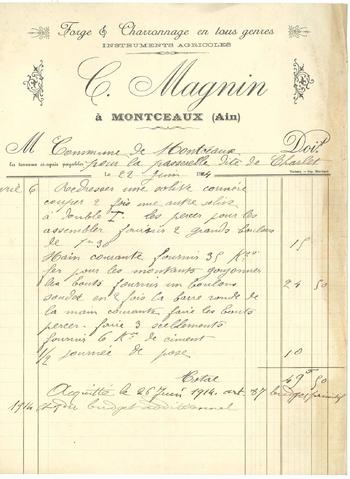 Forge & Charronnage en tous genres
INSTRUMENTS AGRICOLES
C. Magnin
à MONTCEAUX (Ain)
M Commune de Montceaux Doit
pour la passerelle dite de Charlet
Le 22 Juin 1914
avril 6 Redresser une solive cornière
couper 2 fois une autre solive
à double T. les percer pour les
assembler fournir 2 grands boulons
de 1m30 15
Main courante fournir 35 Kgr
fer pour les montants goujonner
les bouts fournir un boulons
souder en 2 fois la barre ronde de
la main courante faire les bouts
percer. faire 3 scellements
fournir 6 Kgr de ciment 24 50
1/2 journée de pose 10
Total 49 50
Acquitté le 26 Juin 1914. art. 37 budget primitif
1914 et du budget additionnel